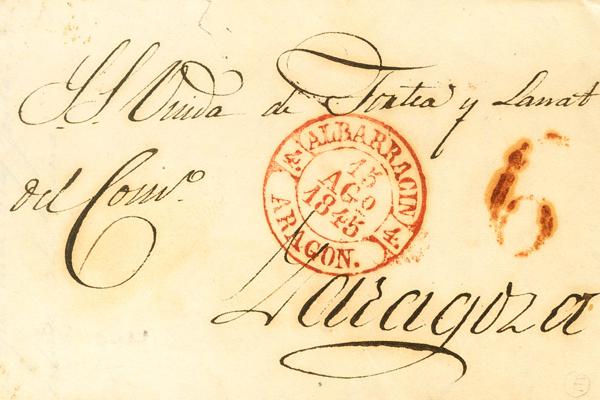 S.S. Viuda de Fontea y Lanat
del Com.º
Zaragoza
4. ALBARRACIN 4.
15
AGO
1845
ARAGON.
6